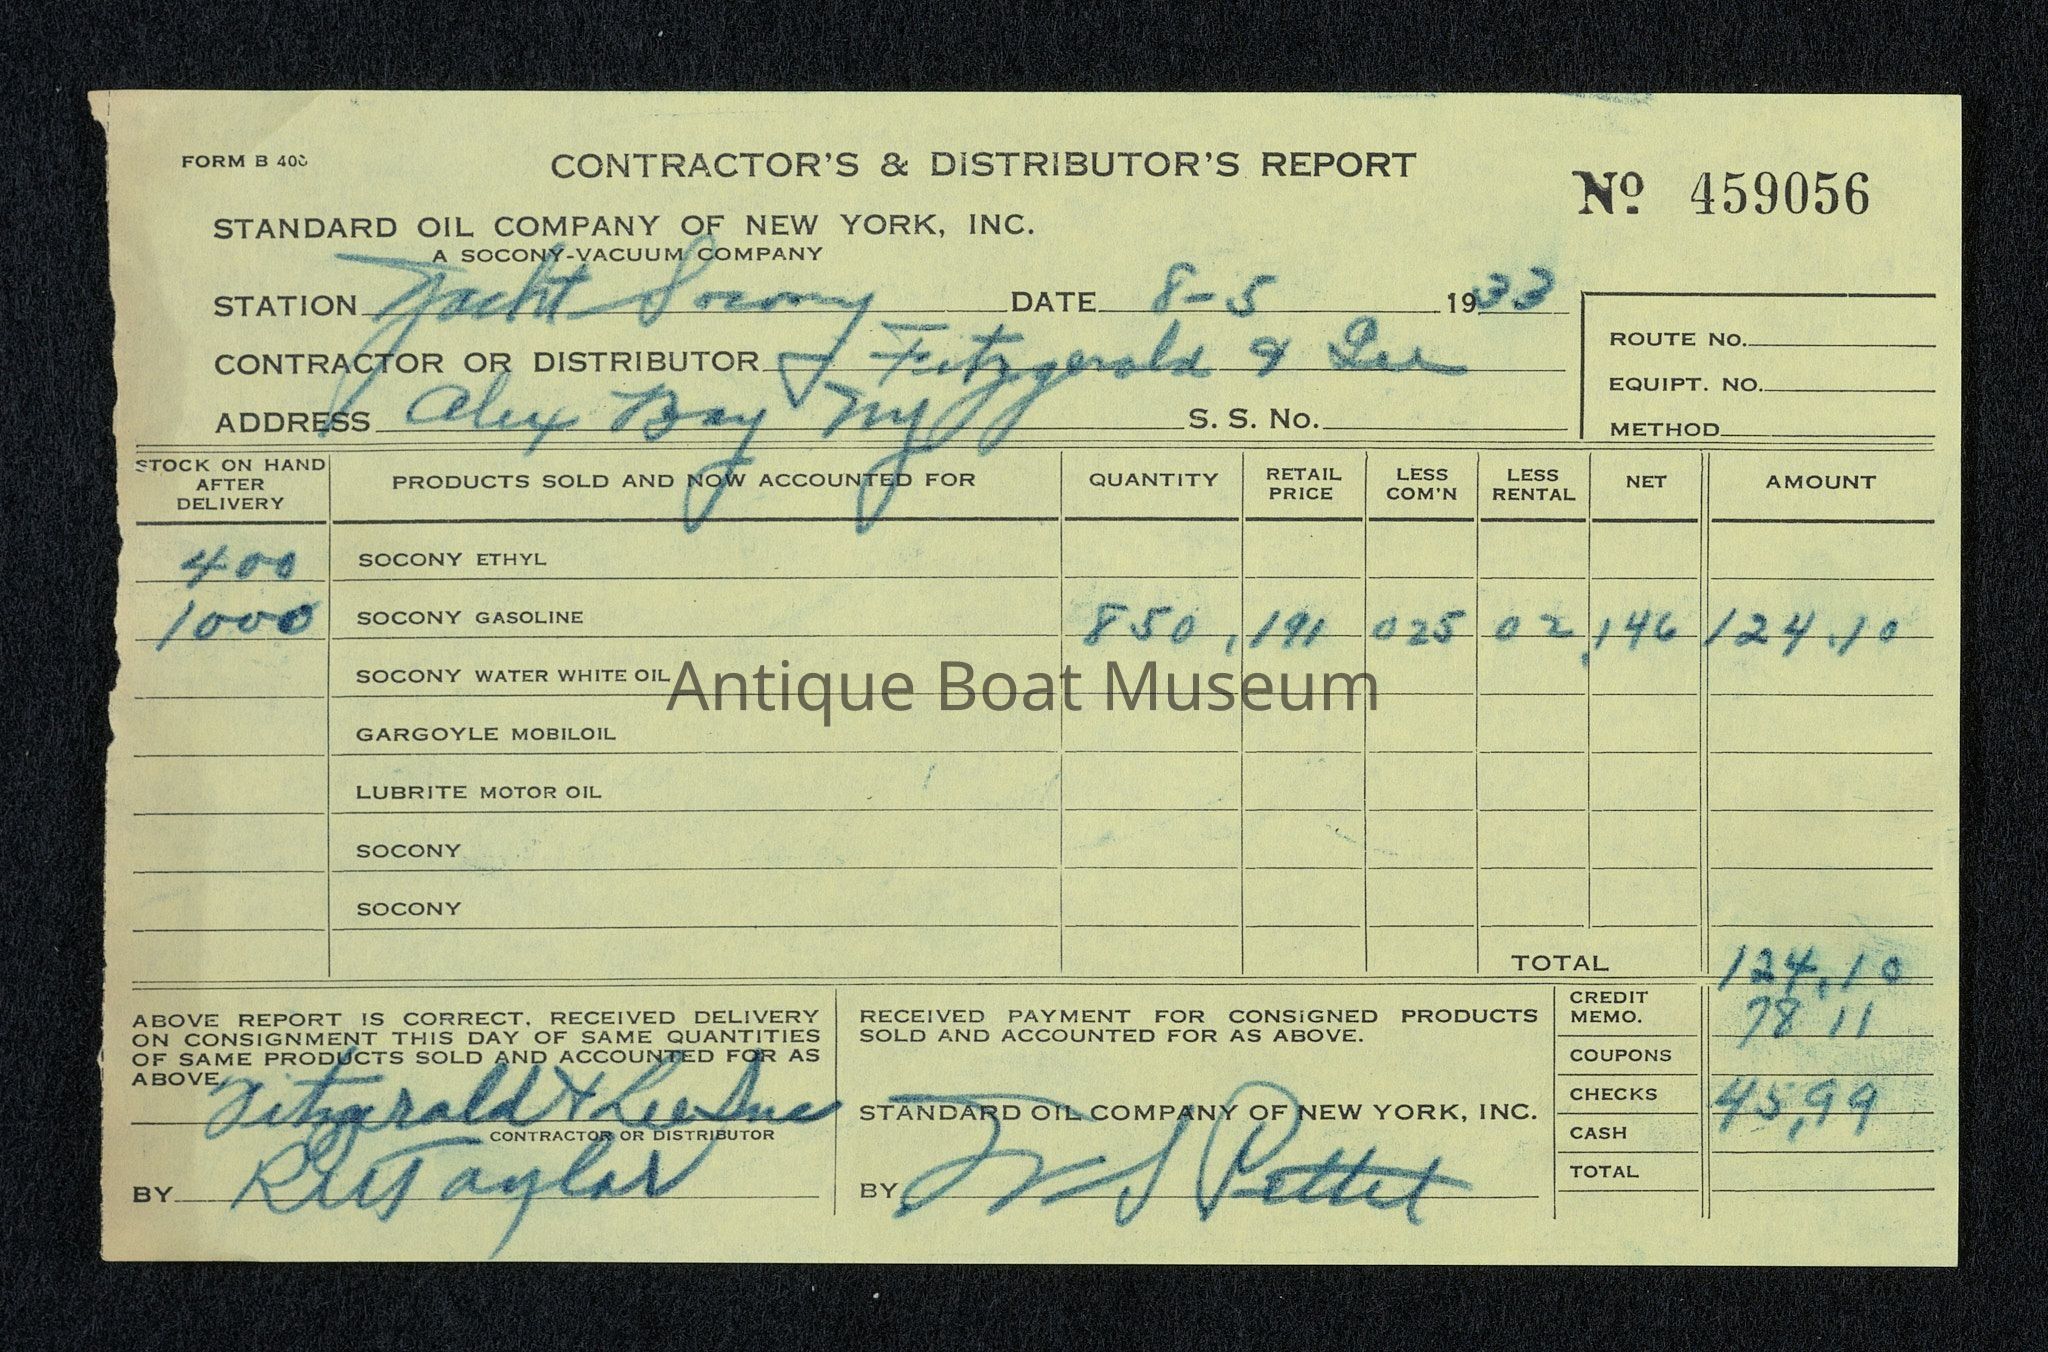 FORM B 40
CONTRACTOR'S & DISTRIBUTOR'S REPORT
Nº 459056
STANDARD OIL COMPANY OF NEW YORK, INC.
A SOCONY-VACUUM COMPANY
STATION Yacht Socony DATE 8-5 1933
CONTRACTOR OR DISTRIBUTOR Fitzgerald & Lee
ADDRESS Alex Bay Ny S. S. No.
ROUTE No.
EQUIPT. NO.
METHOD
STOCK ON HAND AFTER DELIVERY PRODUCTS SOLD AND NOW ACCOUNTED FOR QUANTITY RETAIL PRICE LESS COM'N LESS RENTAL NET AMOUNT
400 SOCONY ETHYL
1000 SOCONY GASOLINE 850 .191 025 02 .146 124.10
SOCONY WATER WHITE OIL
Antique Boat Museum
GARGOYLE MOBILOIL
LUBRITE MOTOR OIL
SOCONY
SOCONY
TOTAL 124.10
ABOVE REPORT IS CORRECT. RECEIVED DELIVERY
ON CONSIGNMENT THIS DAY OF SAME QUANTITIES
OF SAME PRODUCTS SOLD AND ACCOUNTED FOR AS
ABOVE.
Fitzgerald & Lee Inc
CONTRACTOR OR DISTRIBUTOR
BY Taylor
RECEIVED PAYMENT FOR CONSIGNED PRODUCTS
SOLD AND ACCOUNTED FOR AS ABOVE.
STANDARD OIL COMPANY OF NEW YORK, INC.
BY W S Pettet
CREDIT MEMO. 78 11
COUPONS
CHECKS 45.99
CASH
TOTAL